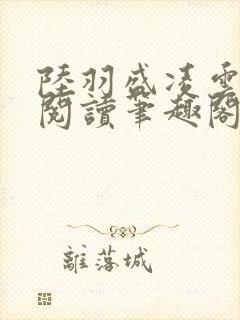 陸羽盛凌雲
閱讀筆趣閣
離落城